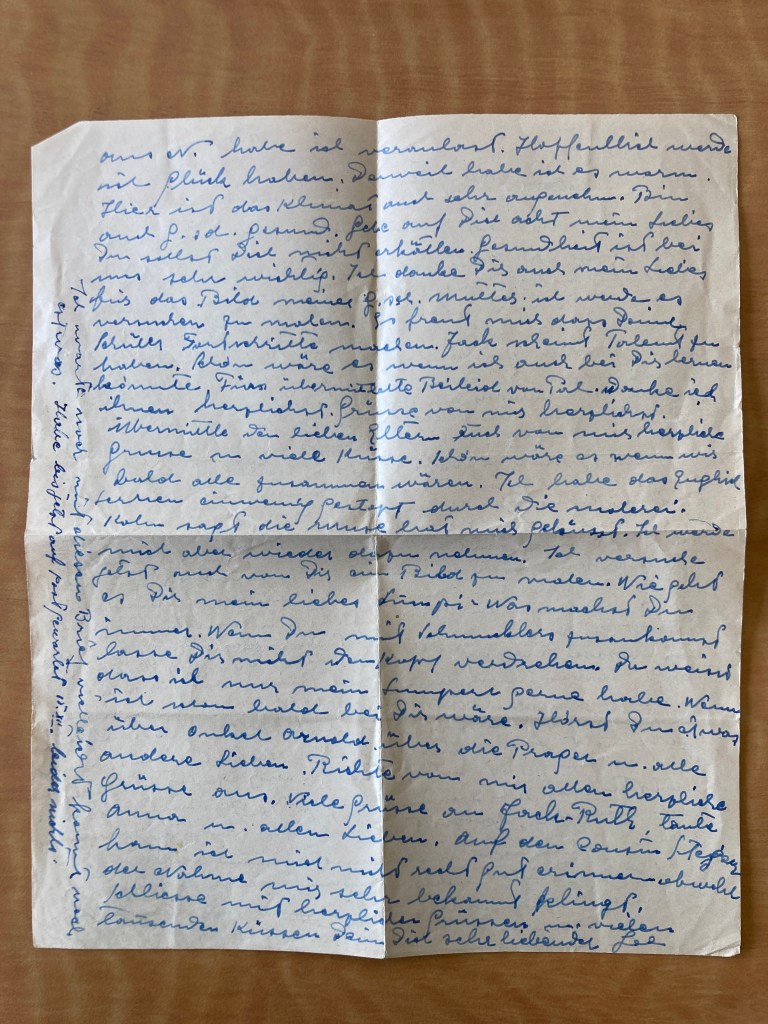 aus N. habe ich veranlast. Hoffentlich werde
ich Glück haben. Derweil habe ich es warm.
Hier ist das Klima auch sehr angenehm. Bin
auch G. s. d. gesund. Gebe auf Dich acht mein Liebes
Du sollst Dich nicht erkälten. Gesundheit ist bei
uns sehr wichtig. Ich danke Dir auch mein Liebes
für das Bild meiner g. sel. Mutter. ich werde es
versuchen zu malen. Es freut mich dass Deine
Schüler Fortschritte machen. Jack scheint Talent zu
haben. Schön wäre es wenn ich auch bei Dir lernen
könnte. Fürs übermittelte Beileid von danke ich
ihnen herzlichst. Grüsse von mir herzlichst.
Übermittle den lieben Eltern auch von mir herzliche
Grüsse u. viele Küsse. Schön wäre es wenn wir
bald alle zusammen wären. Ich habe das Englisch
lernen einwenig gestopt durch die malerei.
Kohn sagt die muse hat mich geküsst. Ich werde
mich aber wieder dazu nehmen. Ich versuche
jetzt auch von Dir ein Bild zu malen. Wie geht
es Dir mein liebes Lumpi - Was machst Du
immer. Wenn Du mit zusamkommst
lasse Dir nicht den Kopf verdrehen. Du weisst
dass ich nur mein Lumperl gerne habe. Wenn
ich schon bald bei Dir wäre. Hörst Du etwas
über Onkel Arnold. über die Prager u. alle
andere Lieben. Richte von mir allen herzliche
Grüsse aus. Viele Grüsse an Jack-Ruth, tante
Anna u. allen Lieben. Auf den Cousin
kann ich mich nicht recht gut erinnern obwohl
der Nahme mir sehr bekannt klingt.
Schliesse mit herzlichen Grüssen u. vielen
tausenden Küssen Dein Dich sehr liebender
Ich warte noch mit diesem Brief vielleicht kommt noch
etwas. Habe bis jetzt auf post gewartet leider nichts.